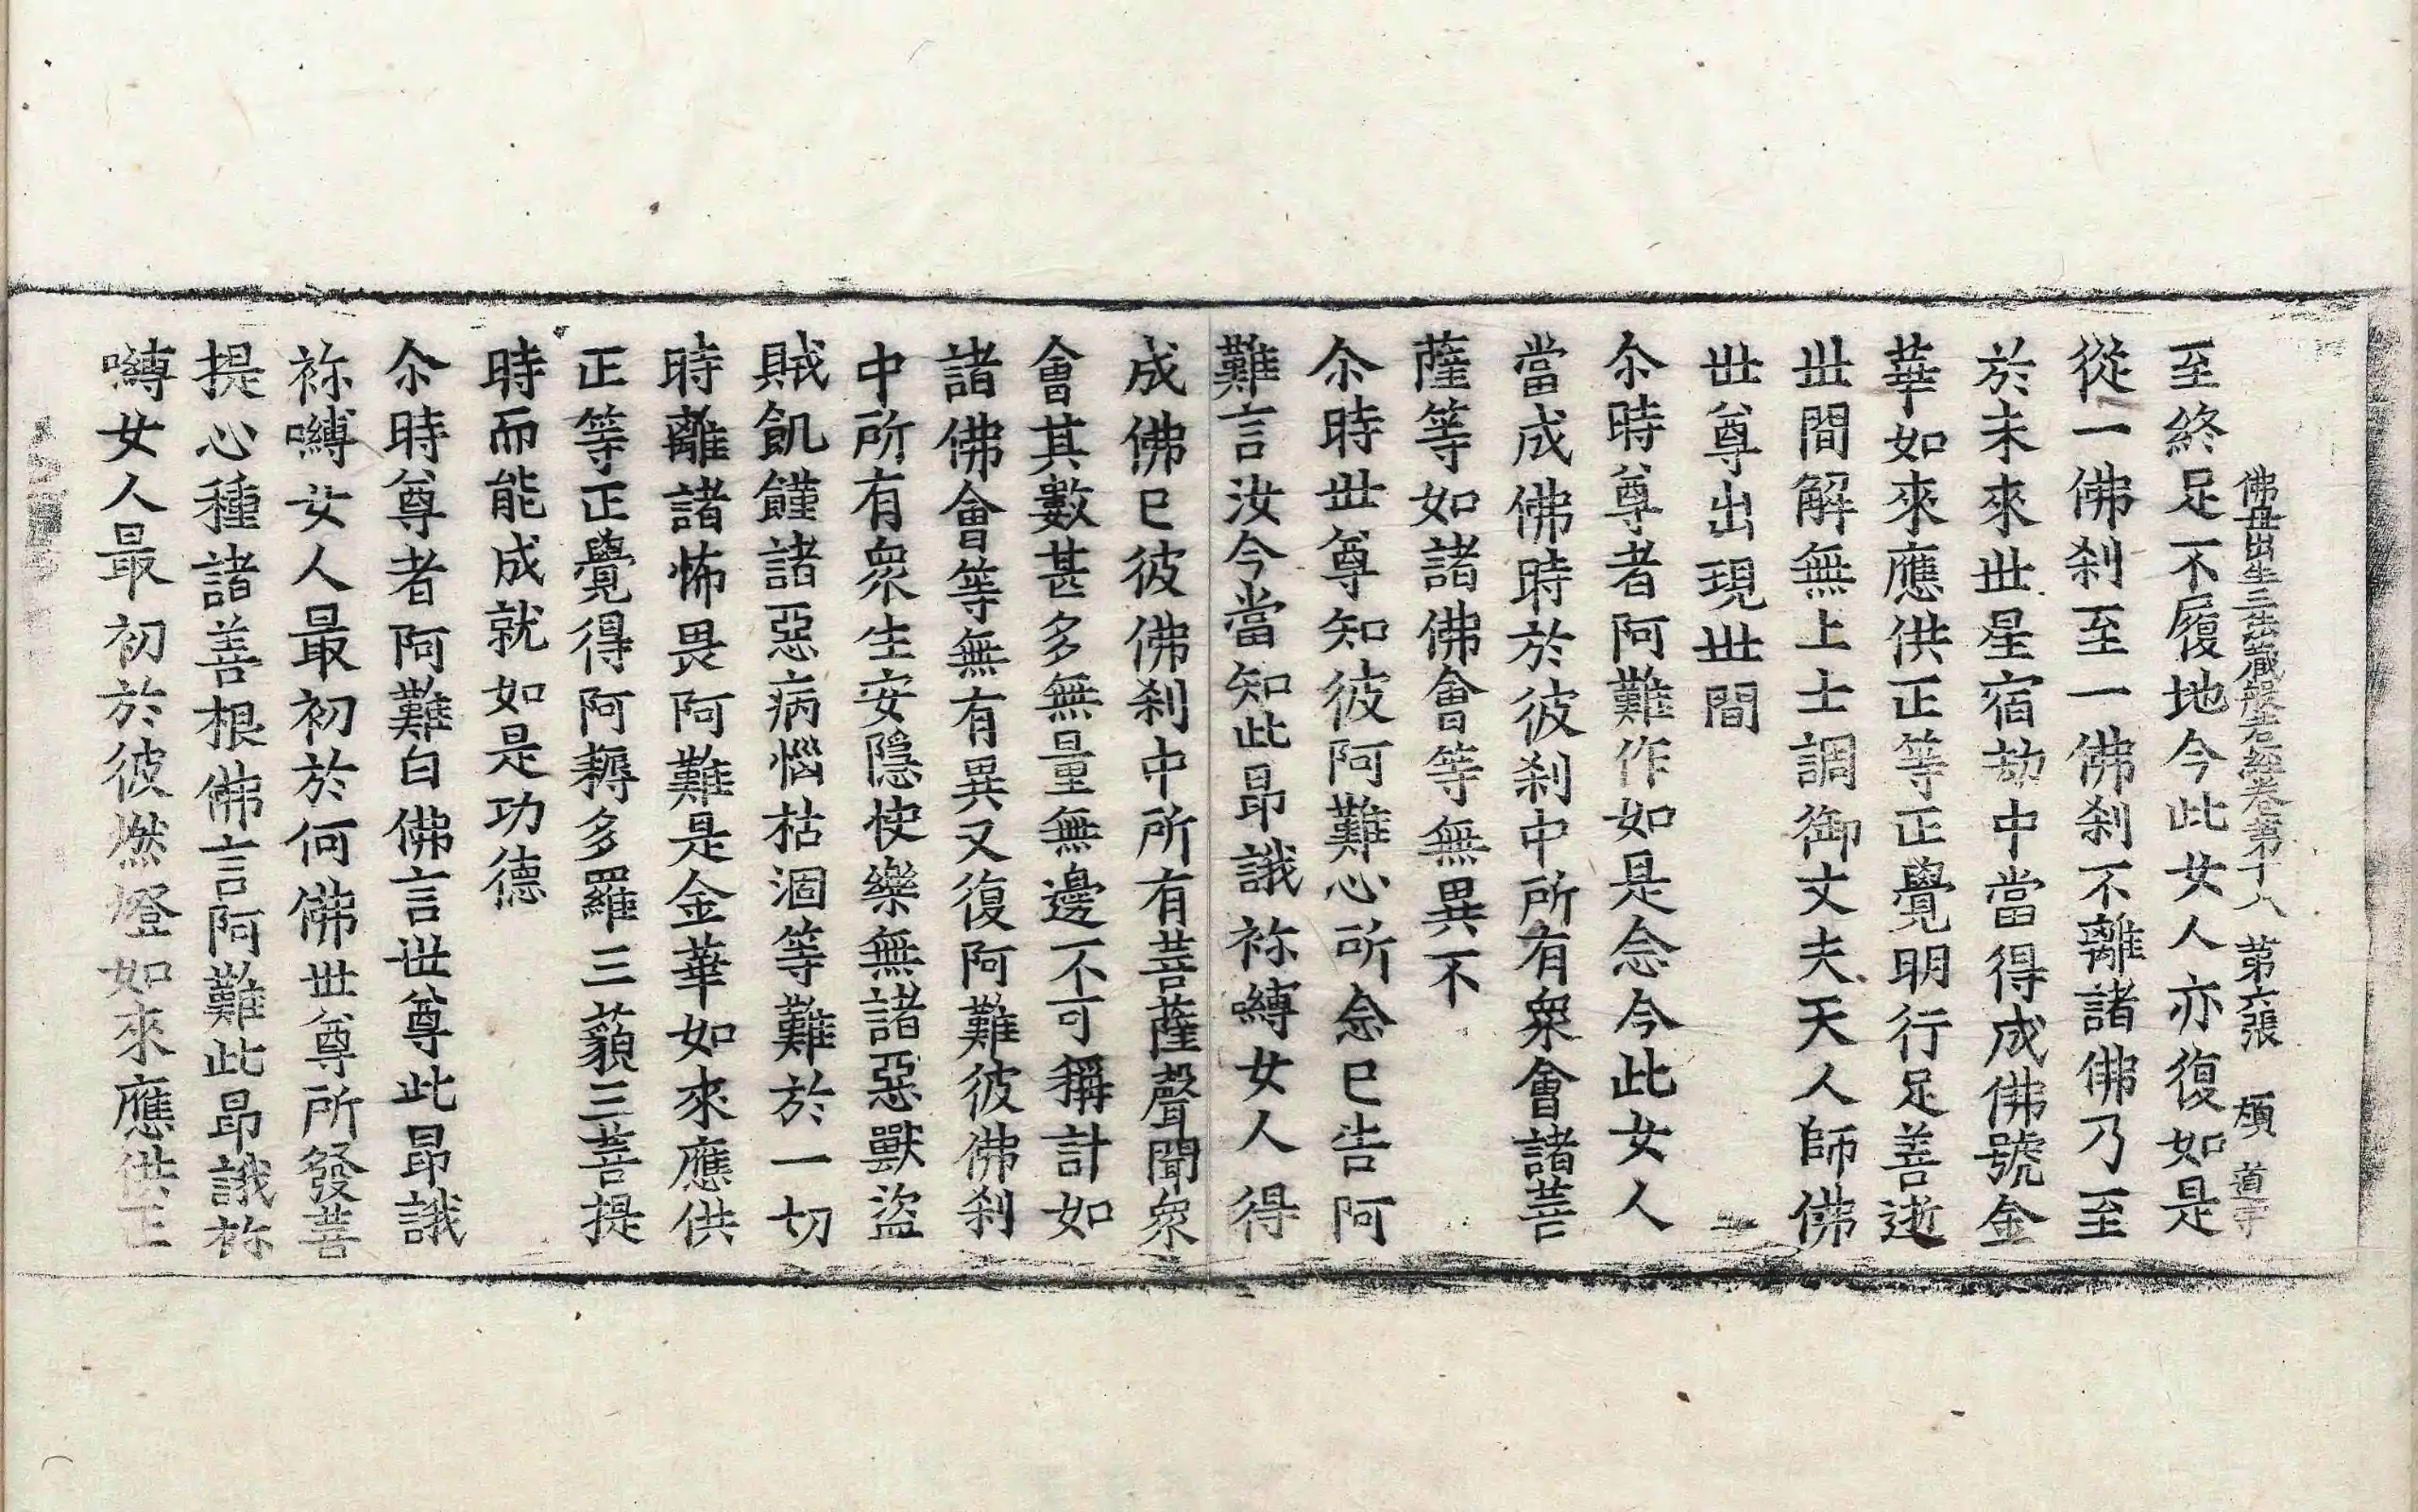 佛母出生三法藏般若經卷第十八 第六張 頎 道寺
至終足不履地今此女人亦復如是
從一佛刹至一佛刹不離諸佛乃至
於未來世星宿劫中當得成佛號金
華如來應供正等正覺明行足善逝
世間解無上士調御丈夫天人師佛
世尊出現世間
尒時尊者阿難作如是念今此女人
當成佛時於彼刹中所有衆會諸菩
薩等如諸佛會等無異不
尒時世尊知彼阿難心所念已告阿
難言汝今當知此昻誐祢嚩女人得
成佛已彼佛刹中所有菩薩聲聞衆
會其數甚多無量無邊不可稱計如
諸佛會等無有異又復阿難彼佛刹
中所有衆生安隱快樂無諸惡獸盜
賊飢饉諸惡病惱枯涸等難於一切
時離諸怖畏阿難是金華如來應供
正等正覺得阿耨多羅三藐三菩提
時而能成就如是功德
尒時尊者阿難白佛言世尊此昻誐
祢嚩女人最初於何佛世尊所發菩
提心種諸善根佛言阿難此昻誐祢
嚩女人最初於彼燃燈如來應供正